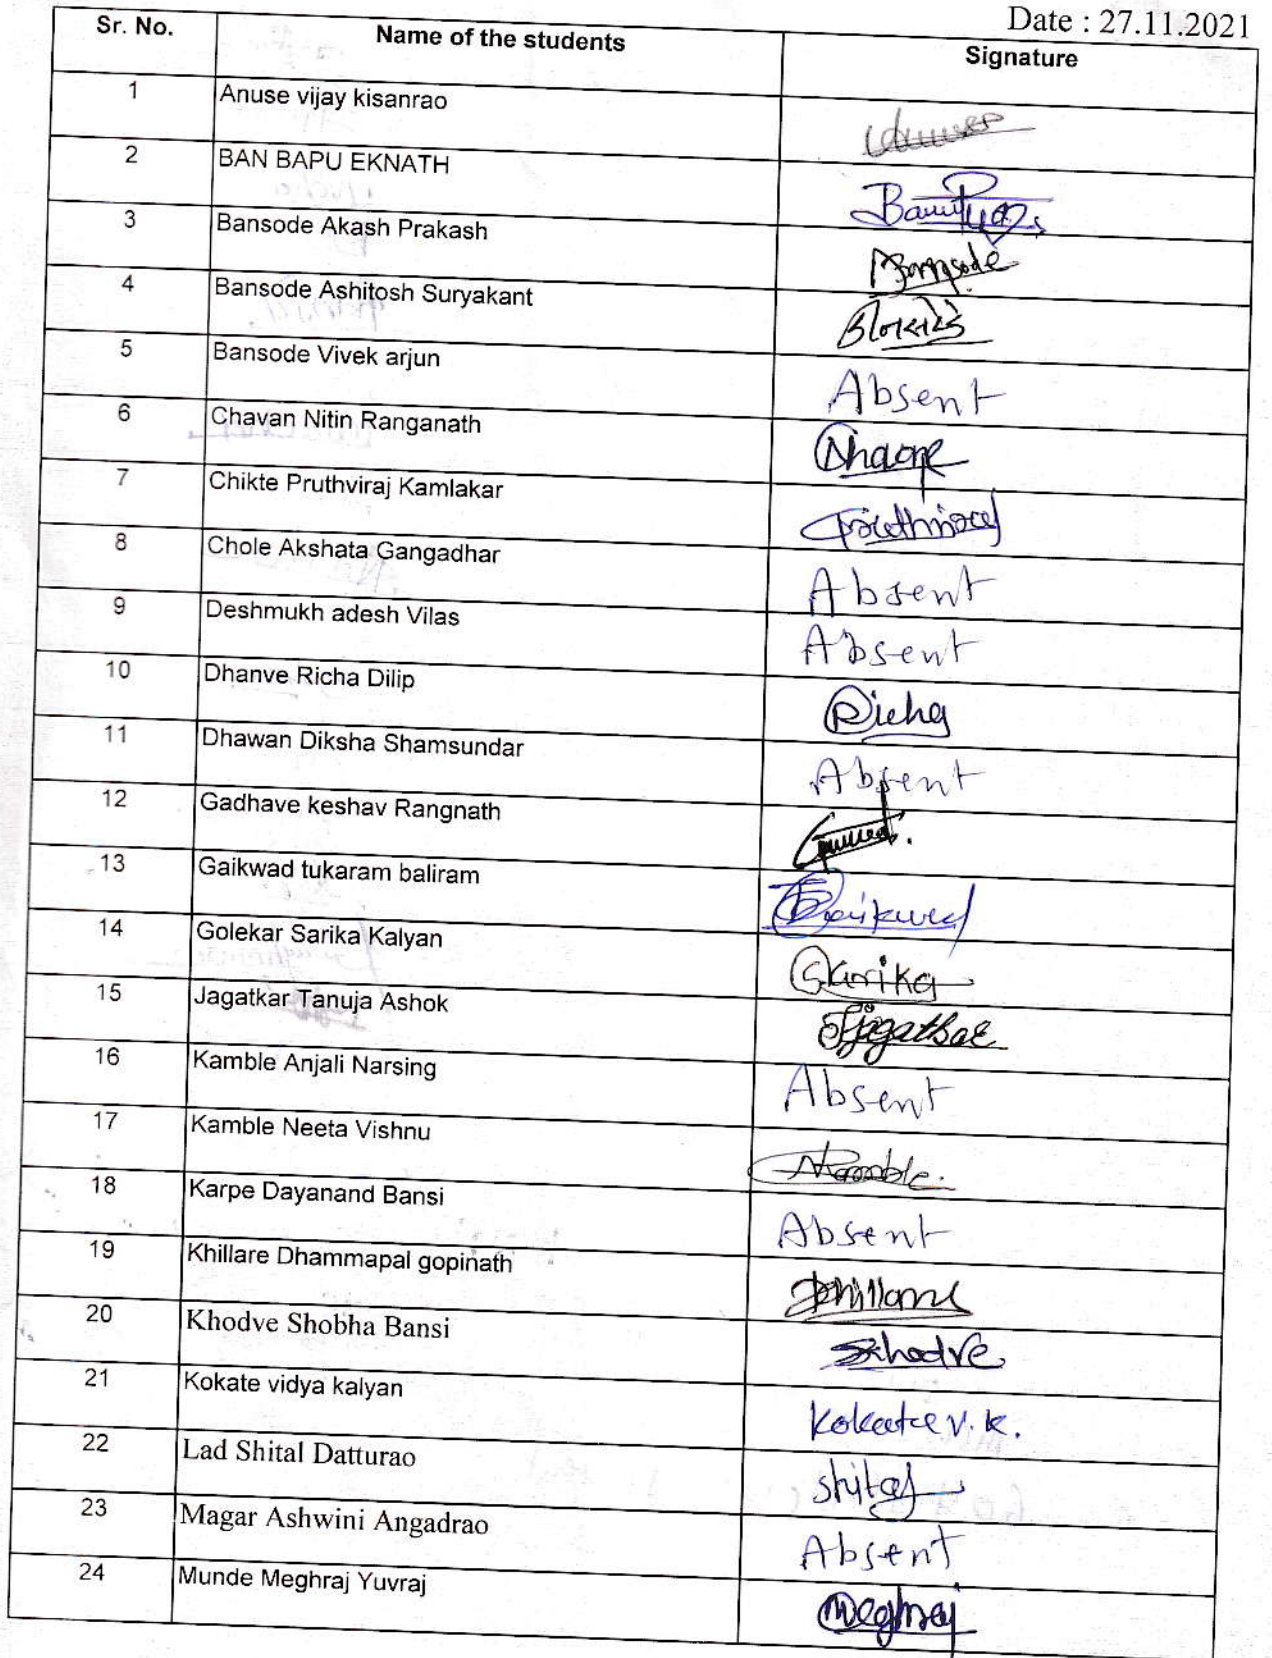 Date : 27.11.2021
Sr. No. Name of the students Signature
1 Anuse vijay kisanrao
2 BAN BAPU EKNATH
3 Bansode Akash Prakash Bansode
4 Bansode Ashitosh Suryakant
5 Bansode Vivek arjun Absent
6 Chavan Nitin Ranganath
7 Chikte Pruthviraj Kamlakar
8 Chole Akshata Gangadhar Absent
9 Deshmukh adesh Vilas Absent
10 Dhanve Richa Dilip Richa
11 Dhawan Diksha Shamsundar Absent
12 Gadhave keshav Rangnath
13 Gaikwad tukaram baliram
14 Golekar Sarika Kalyan Sarika
15 Jagatkar Tanuja Ashok
16 Kamble Anjali Narsing Absent
17 Kamble Neeta Vishnu
18 Karpe Dayanand Bansi Absent
19 Khillare Dhammapal gopinath
20 Khodve Shobha Bansi
21 Kokate vidya kalyan Kokate V. K.
22 Lad Shital Datturao Shital
23 Magar Ashwini Angadrao Absent
24 Munde Meghraj Yuvraj Meghraj